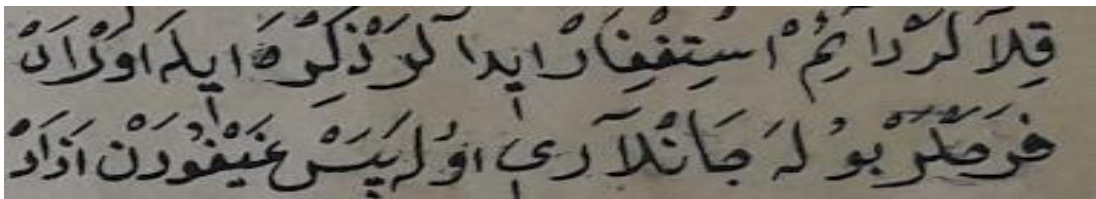 قِلاَ لَرْ دَائِمْ اسْتِغْفَارْ ايدا لَرْ ذِكِرْ هَ ايلَه اَوْرَادْ
فَرَحْلَرْ بُو لَه جَانْلآرِي اوُلَه پَسْ غَيْغُودَنْ اَزَادْ